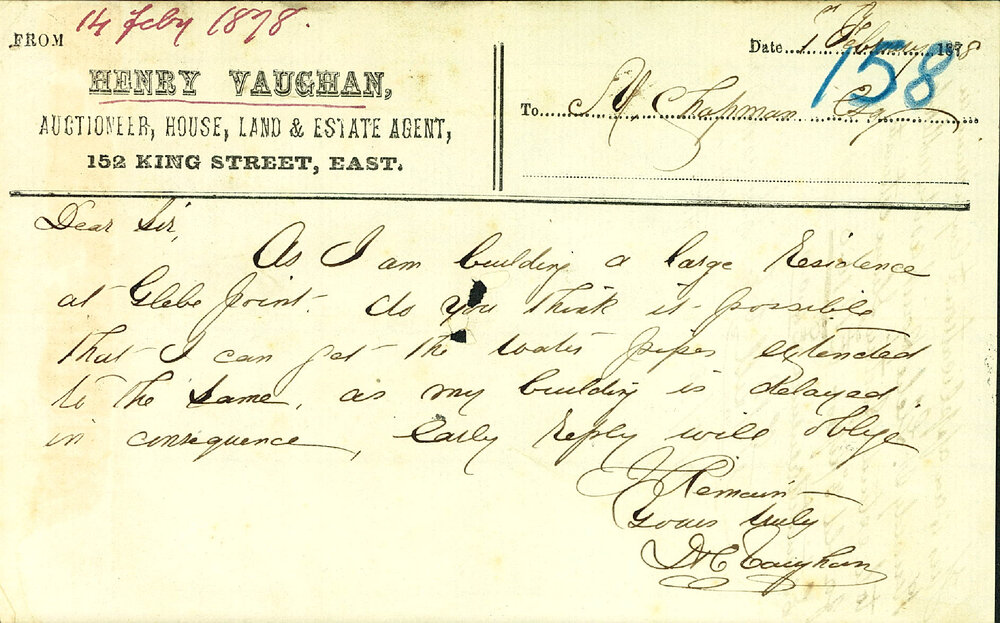 14 Feby 1878
FROM
HENRY VAUGHAN,
AUCTIONEER, HOUSE, LAND & ESTATE AGENT,
152 KING STREET, EAST.
Date 7 February 1878
158
To Chapman Esq
Dear Sir,
As I am building a large Residence
at Glebe Point do you think it possible
that I can get the water pipes extended
to the same, as my building is delayed
in consequence, Early Reply will oblige
I Remain
Yours truly
Vaughan